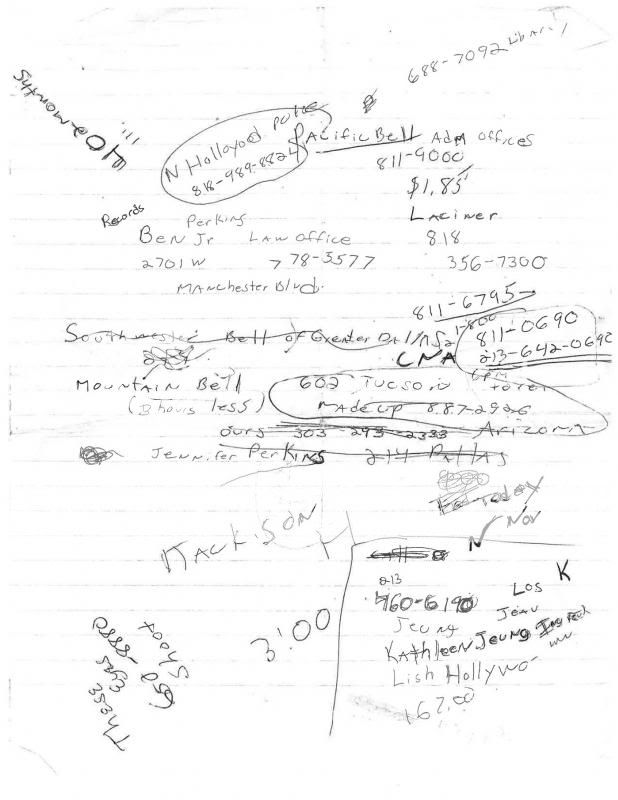 688-7092 Library
N Hollywood Police
818-989-8824
Pacific Bell Adm offices
811-9000
$1.85
Records
Perkins
Laciner
Ben Jr Law office
818
2701 W
778-3577
356-7300
Manchester Blvd.
811-6795
Bell of Greater
1-800
811-0690
CNA
213-642-0692
Mountain Bell
602 Tucson
(3 hours less)
made up 887-2926
ours 303-293-2333
Arizona
Jennifer Perkins
214 Dallas
Today
Nov
Mackson
N
213
460-6190
Los
K
Jeung
Kathleen Jeung
Lish Hollywo
67.00
3:00
These
eyes
Shoot